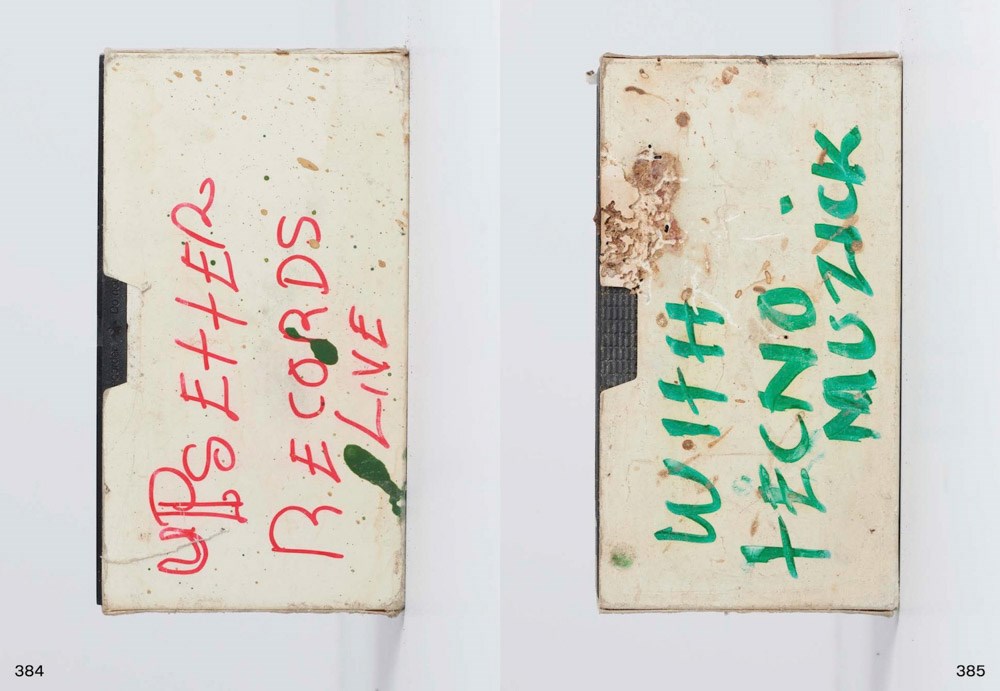 UPSETTER
RECORDS
LIVE
384
WITH
TECNO
MUSZICK
385